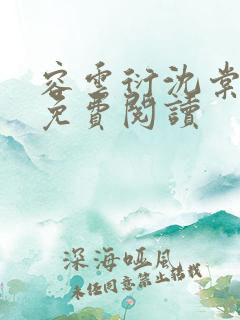 容雲衍沈棠
免費閱讀
深海啞風
未經同意禁止轉載